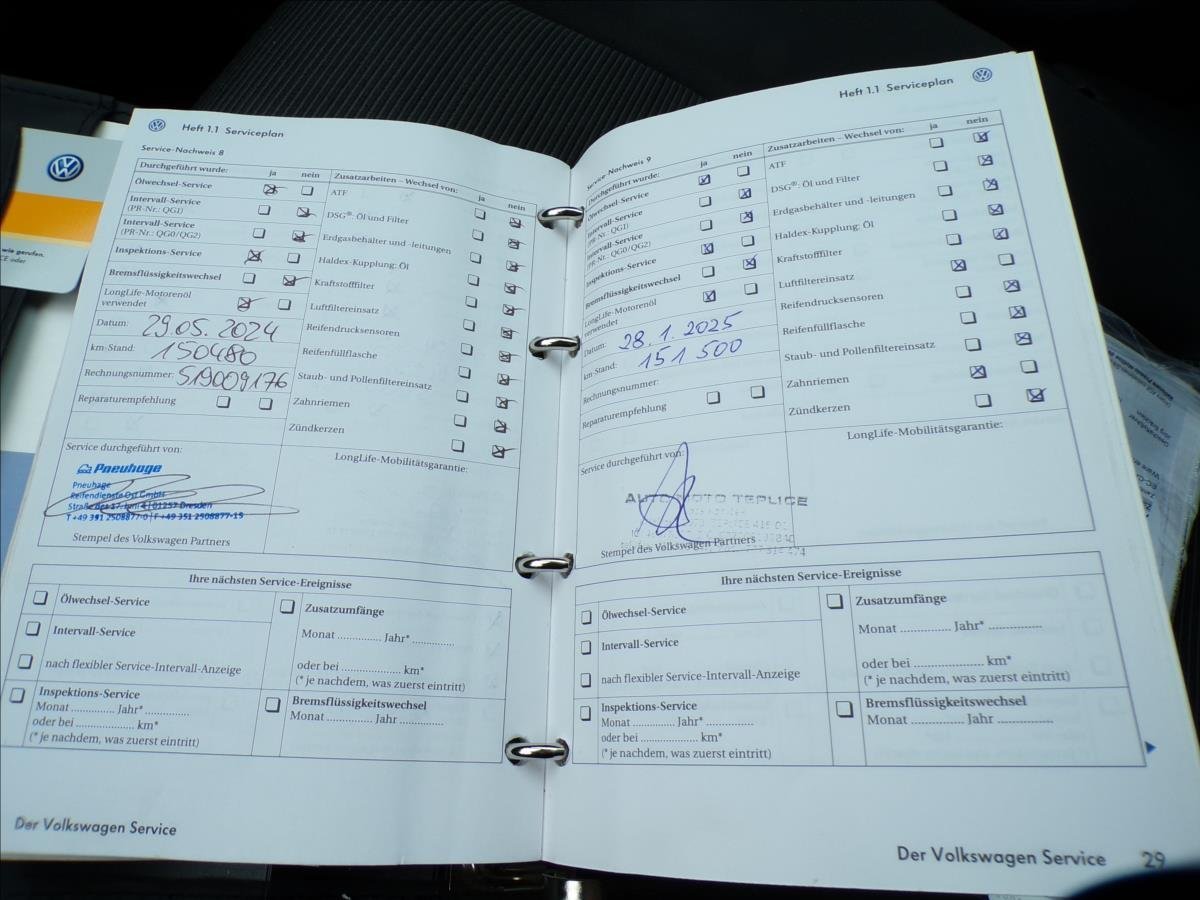 Heft 1.1 Serviceplan
Service-Nachweis 8
Durchgeführt wurde: ja nein
Ölwechsel-Service
Intervall-Service
(PR-Nr.: QG1)
Intervall-Service
(PR-Nr.: QG0/QG2)
Inspektions-Service
Bremsflüssigkeitswechsel
LongLife-Motorenöl
verwendet
Datum: 29.05.2024
km-Stand: 150480
Rechnungsnummer: 519009176
Reparaturempfehlung
Zusatzarbeiten – Wechsel von: ja nein
ATF
DSG®: Öl und Filter
Erdgasbehälter und -leitungen
Haldex-Kupplung: Öl
Kraftstofffilter
Luftfiltereinsatz
Reifendrucksensoren
Reifenfüllflasche
Staub- und Pollenfiltereinsatz
Zahnriemen
Zündkerzen
Service durchgeführt von:
Pneuhage
Pneuhage
Reifendienste Ost GmbH
Straße des 17. Juni 4 | 01257 Dresden
T +49 351 2508877-0 | F +49 351 2508877-15
Stempel des Volkswagen Partners
LongLife-Mobilitätsgarantie:
Ihre nächsten Service-Ereignisse
Ölwechsel-Service
Intervall-Service
nach flexibler Service-Intervall-Anzeige
Inspektions-Service
Monat ............ Jahr* ............
oder bei .................... km*
(* je nachdem, was zuerst eintritt)
Zusatzumfänge
Monat ............ Jahr* ............
oder bei .................... km*
(* je nachdem, was zuerst eintritt)
Bremsflüssigkeitswechsel
Monat ............ Jahr ............
Der Volkswagen Service
Heft 1.1 Serviceplan
Service-Nachweis 9
Durchgeführt wurde: ja nein
Ölwechsel-Service
Intervall-Service
(PR-Nr.: QG1)
Intervall-Service
(PR-Nr.: QG0/QG2)
Inspektions-Service
Bremsflüssigkeitswechsel
LongLife-Motorenöl
verwendet
Datum: 28.1.2025
km Stand: 151 500
Rechnungsnummer:
Reparaturempfehlung
Zusatzarbeiten – Wechsel von: ja nein
ATF
DSG®: Öl und Filter
Erdgasbehälter und -leitungen
Haldex-Kupplung: Öl
Kraftstofffilter
Luftfiltereinsatz
Reifendrucksensoren
Reifenfüllflasche
Staub- und Pollenfiltereinsatz
Zahnriemen
Zündkerzen
Service durchgeführt von:
AUTO MOTO TEPLICE
Stempel des Volkswagen Partners
LongLife-Mobilitätsgarantie:
Ihre nächsten Service-Ereignisse
Ölwechsel-Service
Intervall-Service
nach flexibler Service-Intervall-Anzeige
Inspektions-Service
Monat ............ Jahr* ............
oder bei .................... km*
(* je nachdem, was zuerst eintritt)
Zusatzumfänge
Monat ............ Jahr* ............
oder bei .................... km*
(* je nachdem, was zuerst eintritt)
Bremsflüssigkeitswechsel
Monat ............ Jahr ............
Der Volkswagen Service 29
wie gerufen.